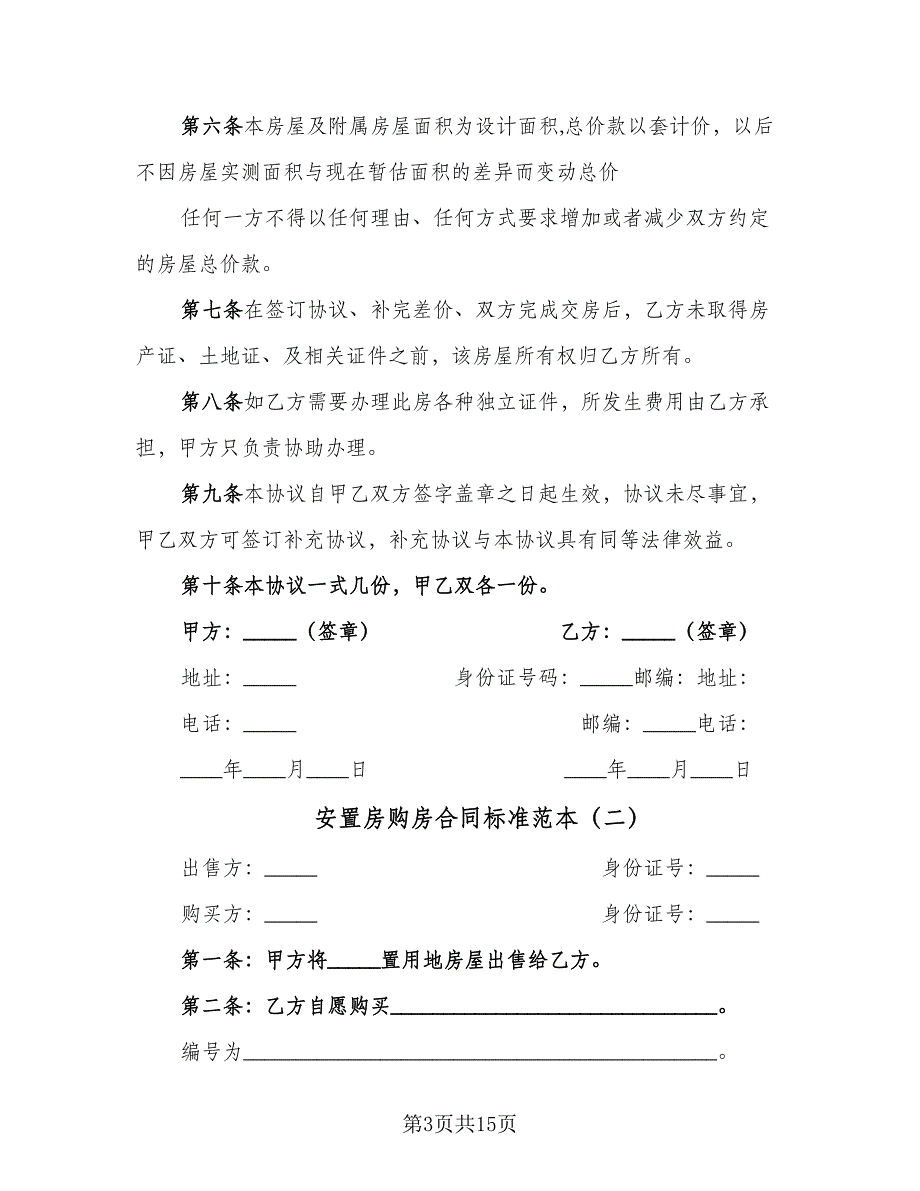 第六条本房屋及附属房屋面积为设计面积,总价款以套计价，以后
不因房屋实测面积与现在暂估面积的差异而变动总价
任何一方不得以任何理由、任何方式要求增加或者减少双方约定
的房屋总价款。
第七条在签订协议、补完差价、双方完成交房后，乙方未取得房
产证、土地证、及相关证件之前，该房屋所有权归乙方所有。
第八条如乙方需要办理此房各种独立证件，所发生费用由乙方承
担，甲方只负责协助办理。
第九条本协议自甲乙双方签字盖章之日起生效，协议未尽事宜，
甲乙双方可签订补充协议，补充协议与本协议具有同等法律效益。
第十条本协议一式几份，甲乙双各一份。
甲方：_____（签章） 乙方：_____（签章）
地址：_____ 身份证号码：_____邮编：地址：
电话：_____ 邮编：_____电话：
____年____月____日 ____年____月____日
安置房购房合同标准范本（二）
出售方：_____ 身份证号：_____
购买方：_____ 身份证号：_____
第一条：甲方将_____置用地房屋出售给乙方。
第二条：乙方自愿购买_______________________________。
编号为_____________________________________________。
第3页共15页